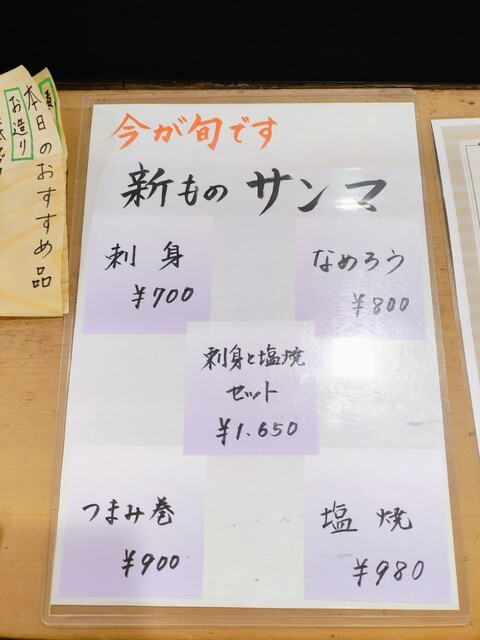 本日のおすすめ品
お造り
今が旬です
新もの サンマ
刺身
¥700
なめろう
¥800
刺身と塩焼
セット
¥1.650
つまみ巻
¥900
塩焼
¥980